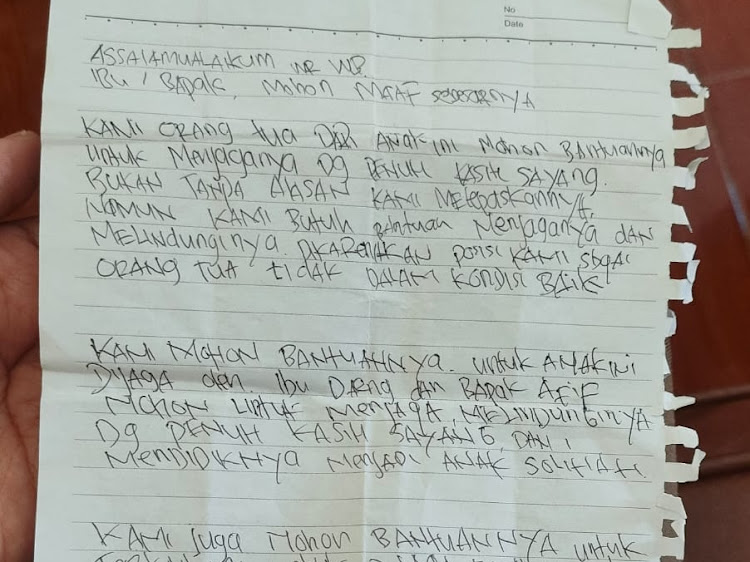 No
Date
ASSALAMUALAIKUM WR WB.
IBU / BAPAK, MOHON MAAF sebesarnya
KAMI ORANG tua DARI ANAK INI MOHON BANtuannya
untuk Menjaganya Dg PENUH KASIH SAYANG.
BUKAN TANPA ALASAN KAMI MELEPASKANNYA,
NAMUN KAMI BUtuh Bantuan Menjaganya DAN
MELINDUNGInya. DIKARENAKAN posisi KAMI sbgai
ORANG tuA tidak DALAM KONDISI BAIK
KAMI MOHON BANTUANNya. untuk ANAK INI
DIJAGA oleh Ibu DAENG dan BAPAK AFIF
MOHON UNTUK MENJAGA, MELINDUNGINYA
Dg PENUH KASIH SAYANG, DAN
MENDIDIKNya MENJADI ANAK SOLIHAH.
KAMI Juga MOHON BANTUANNYA untuk